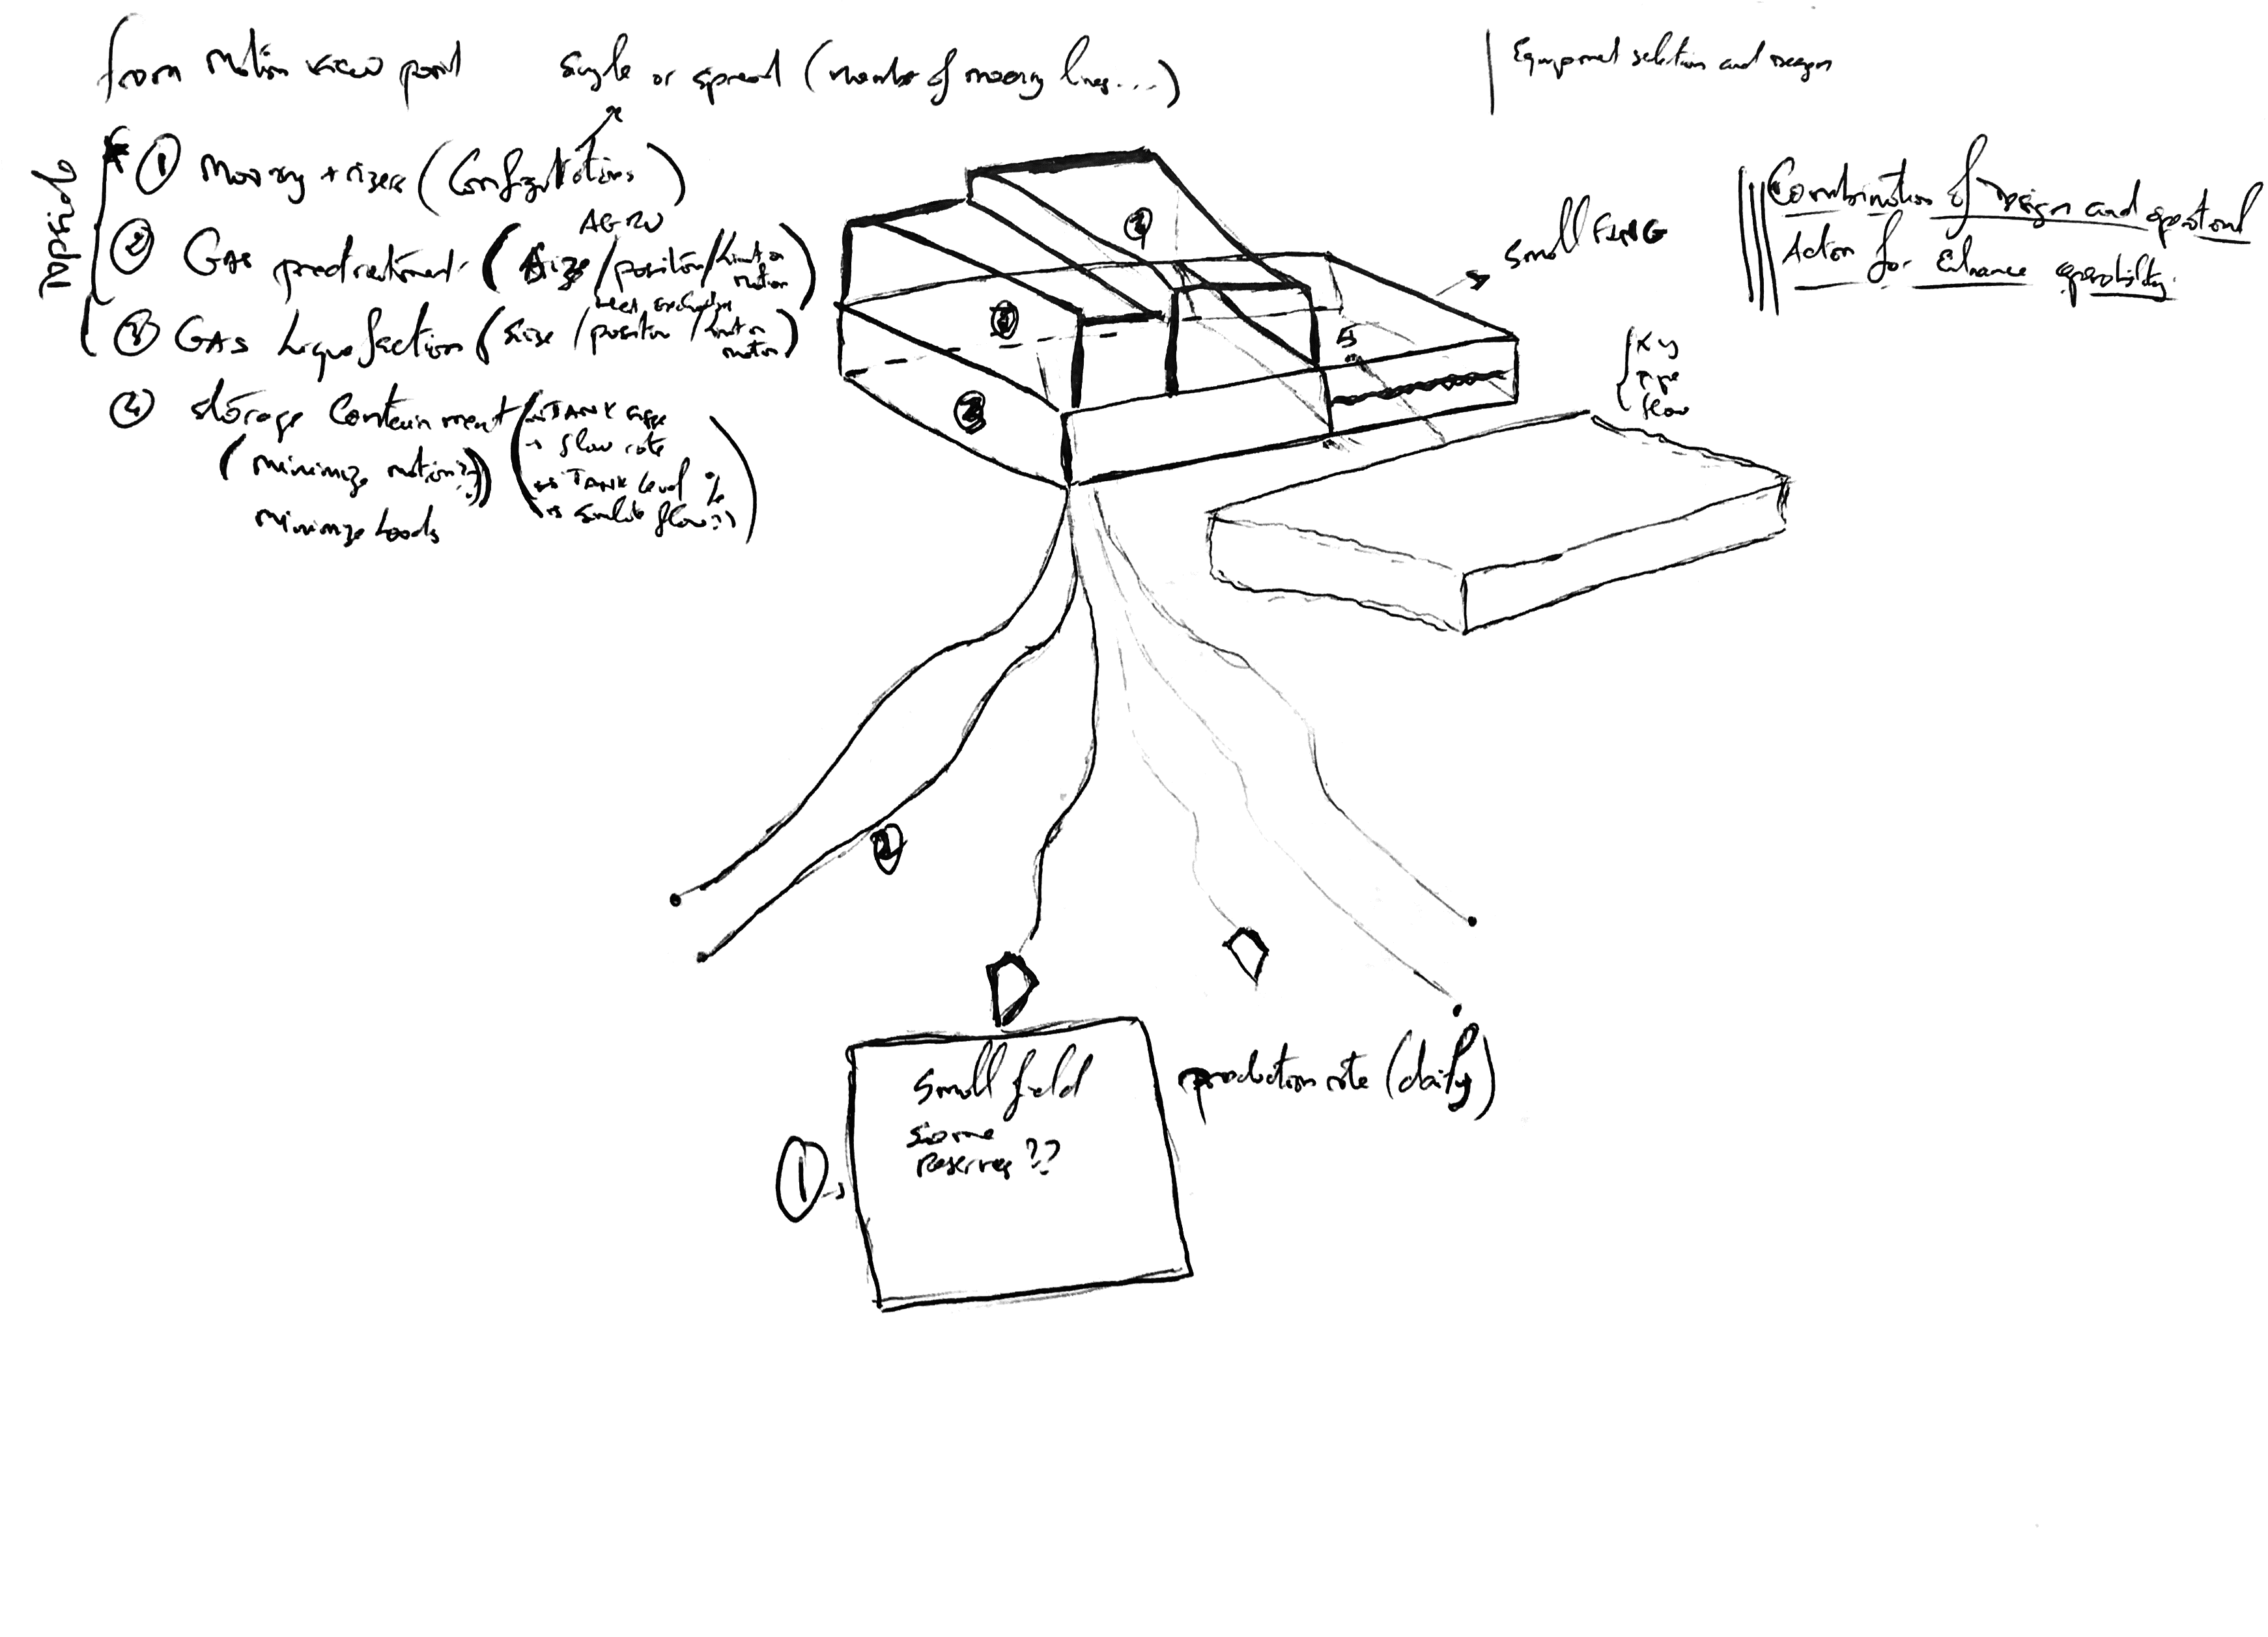 from motion view point
single or spread (number of mooring lines...)
Equipment selection and design
Topside
① Mooring + risers (Configurations)
AGRU
② GAS pretreatment (size/position/limit on motion)
heat exchanger
③ GAS Liquefaction (size/position/limit on motion)
④ storage Containment
(minimize motion??)
minimize loads
→ TANK size
→ flow rate
→ TANK level %
→ flow??
small FLNG
Combination of Design and operational
Action for Enhance operability
x y
flow
③
④
②
5
②
Small field
some
reserves??
①→
production rate (daily)